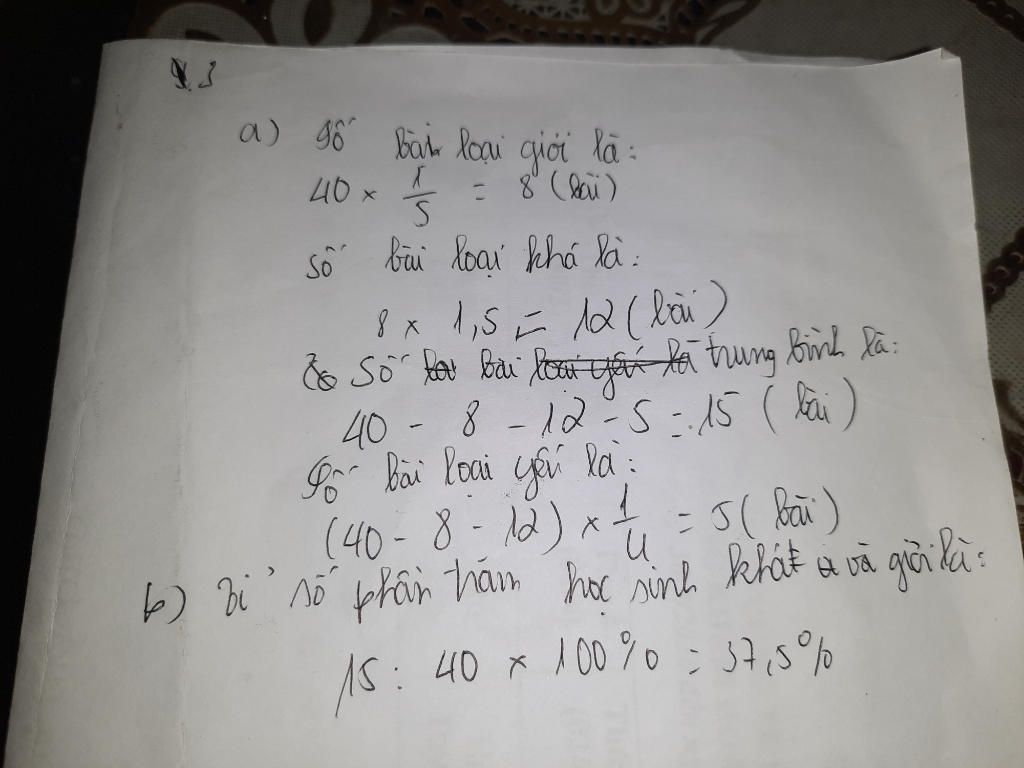 3
a) Số bài loại giỏi là:
40 × 1/5 = 8 (bài)
Số bài loại khá là:
8 × 1,5 = 12 (bài)
Số bài loại yếu là trung bình là:
40 - 8 - 12 - 5 = 15 (bài)
Số bài loại yếu là:
(40 - 8 - 12) × 1/4 = 5 (bài)
b) Tỉ số phần trăm học sinh khá và giỏi là:
15 : 40 × 100% = 37,5%